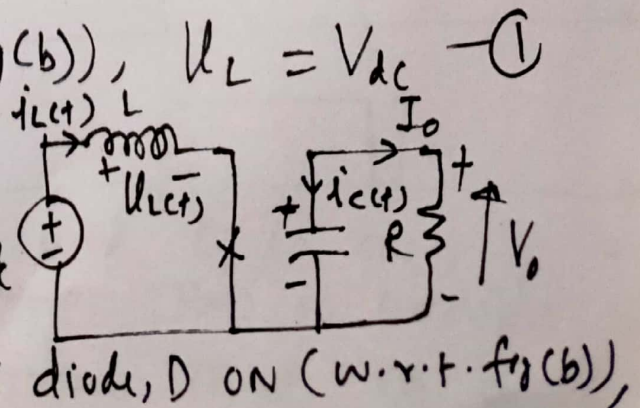 (b)), U_L = V_dc —①
i_L(t) L I_o
+ U_L(t) -
+ i_c(t) +
+ - R V_o
- -
diode, D ON (w.r.t. fig(b)),